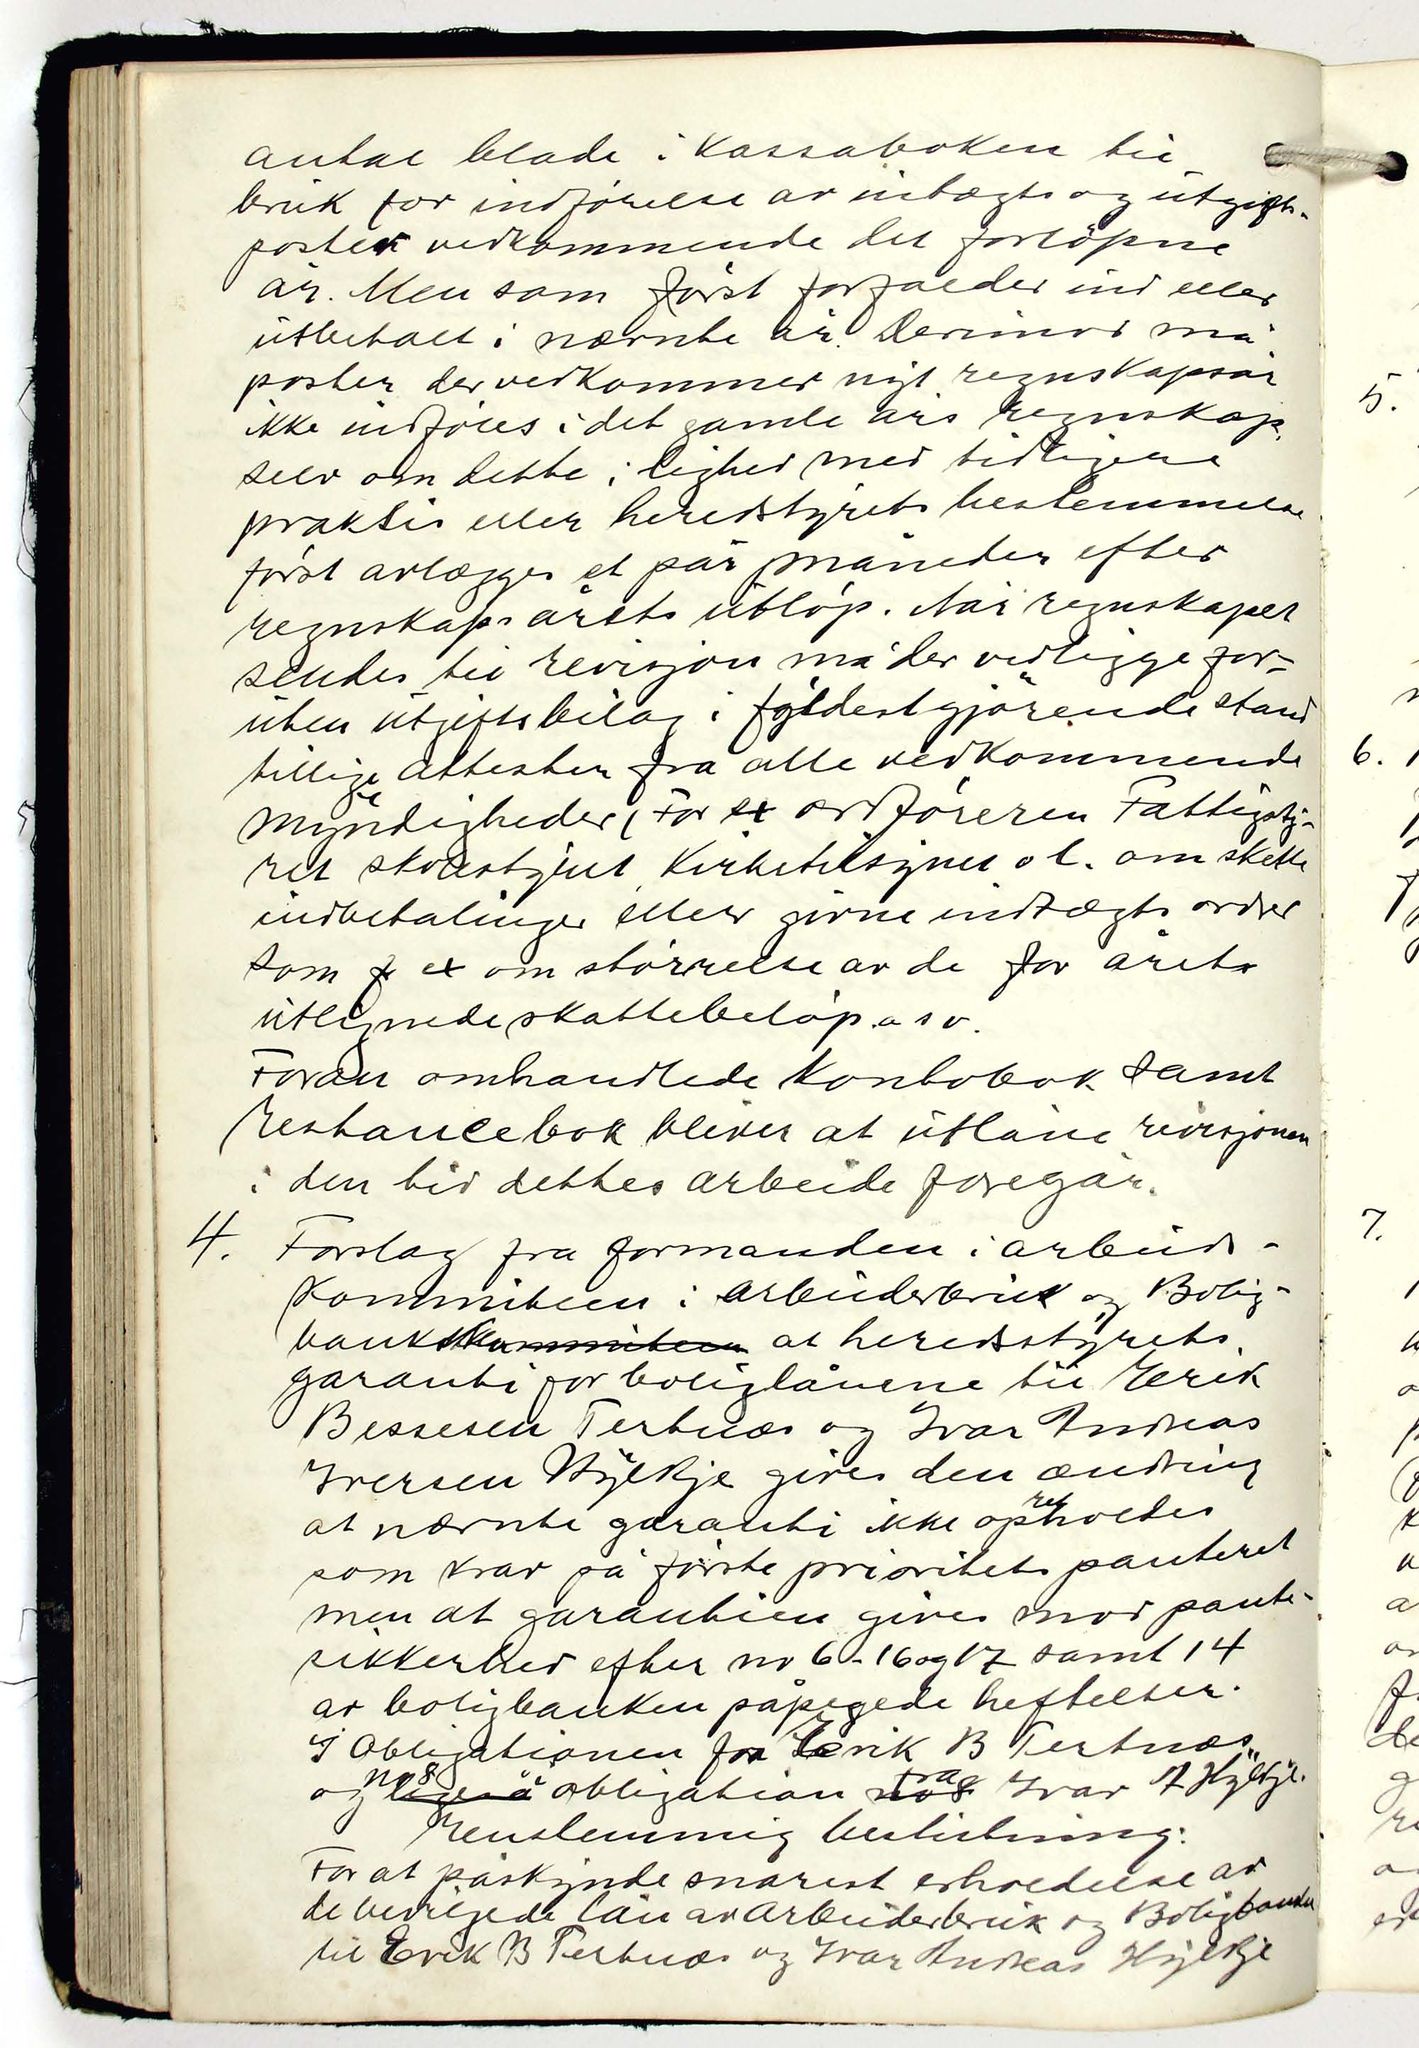 antal blade i kassaboken til
bruk for indförelse av indtægts og utgifts-
poster vedkommende det forlöpne
år. Men som först forfalder ind eller
utbetalt i nævnte år. Derimod må
poster der vedkommer nyt regnskapsår
ikke indföres i det gamle års regnskap,
selv om dette i lighed med tidligere
praksis eller heredstyrets bestemmelse
först avlægges et par måneder efter
regnskapsårets utlöp. Når regnskapet
sendes til revisjon må der vedligge for-
uten utgiftsbilag i fyldestgjörende stand
tillige attester fra alle vedkommende
myndigheder, for ex ordföreren Fattigsty-
ret skolestyret, Kirketilsynet o l. om skette
indbetalinger eller givne indtægts ordrer
som f ex om störrelse av de for årets
utlignede skattebelöp o s v.
Foran omhandlede Kontobok samt
Restancebok bliver at utlåne revisjonen
i den tid dettes arbeide foregår.
4. Forslag fra formanden i arbeids-
kommiteen i Arbeiderbruk og Bolig-
bank at heredsstyrets
garanti for boliglånene til Erik
Bessesen Tertnæs og Ivar Andreas
Iversen Hylkje gives den ændring
at nævnte garanti ikke opretholdes
som krav på förste prioritets panteret
men at garantien gives mod pante-
sikkerhed efter no 6-16 og 17 samt 14
av boligbanken påpegede heftelser.
I Obligationen fra Erik B Tertnæs
og no 8 i obligation fra Ivar A Hylkje.
Enstemmig beslutning:
For at påskynde snarest erholdelse av
de bevilgede lån av Arbeiderbruk og Boligbanken
til Erik B Tertnæs og Ivar Andreas Hylkje
5.
6.
7.